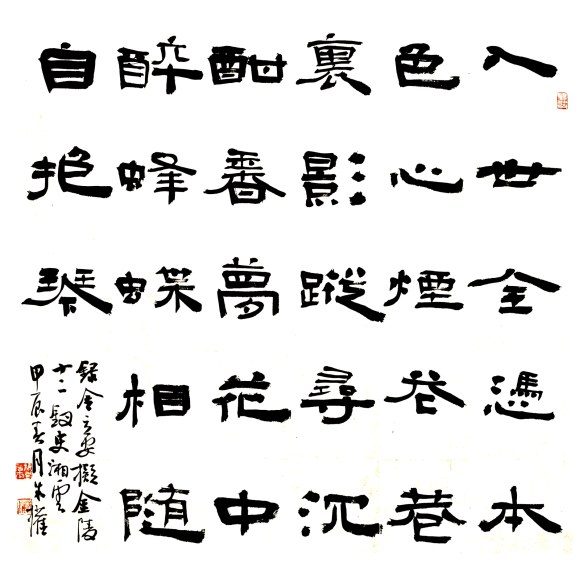 入世全憑本
色心煙花巷
裏影蹤尋沉
酣番夢花中
醉蜂蝶相隨
自抱琴
錄金立安擬金陵
十二釵史湘雲
甲辰春月朱耀